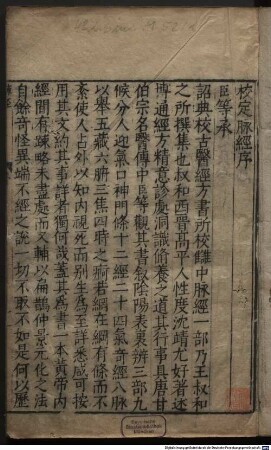 校定脈經序
臣等承
詔典校古醫經方書所校讎中脈經一部乃王叔和
之所撰集也叔和西晉高平人性度沈靖尤好著述
博通經方精意診處洞識脩養之道其行事具唐甘
伯宗名醫傳中臣等觀其書叙陰陽表裏辨三部九
候分人迎氣口神門條十二經二十四氣奇經八脈
以舉五藏六腑三焦四時之痾若網在綱有條而不
紊使人占外以知内視死而別生爲至詳悉咸可按
用其文約其事詳者獨何哉蓋其爲書一本黄帝内
經間有踈略未盡處而又輔以扁鵲仲景元化之法
自餘奇怪異端不經之說一切不取不如是何以歷
Bayerische
Staatsbibliothek
München